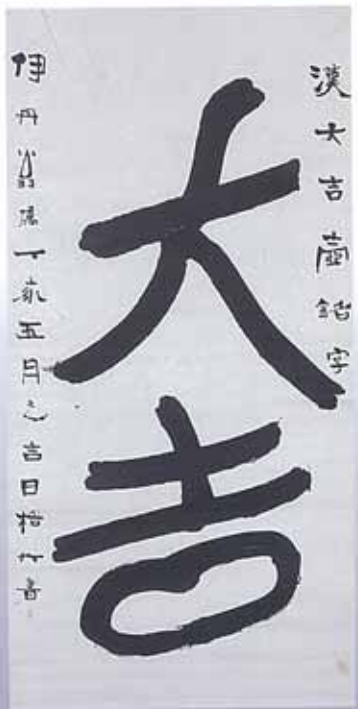 漢大吉壺銘字
大吉
伊丹翁属丁亥五月之吉日梧竹書